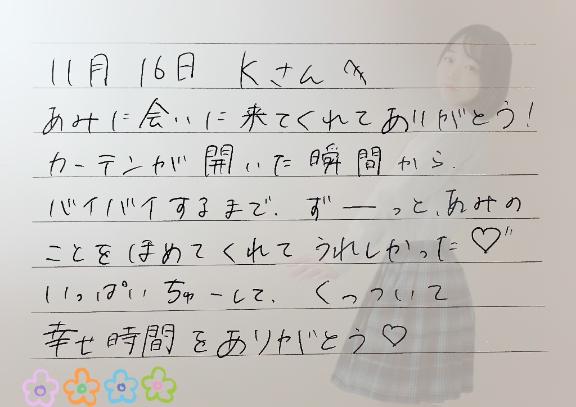 11月 16日 Kさんへ
あみに会いに来てくれてありがとう!
カーテンが開いた瞬間から、
バイバイするまで、ずーっと、あみの
ことをほめてくれてうれしかった♡"
いっぱいちゅーして、くっついて
幸せ時間をありがとう♡